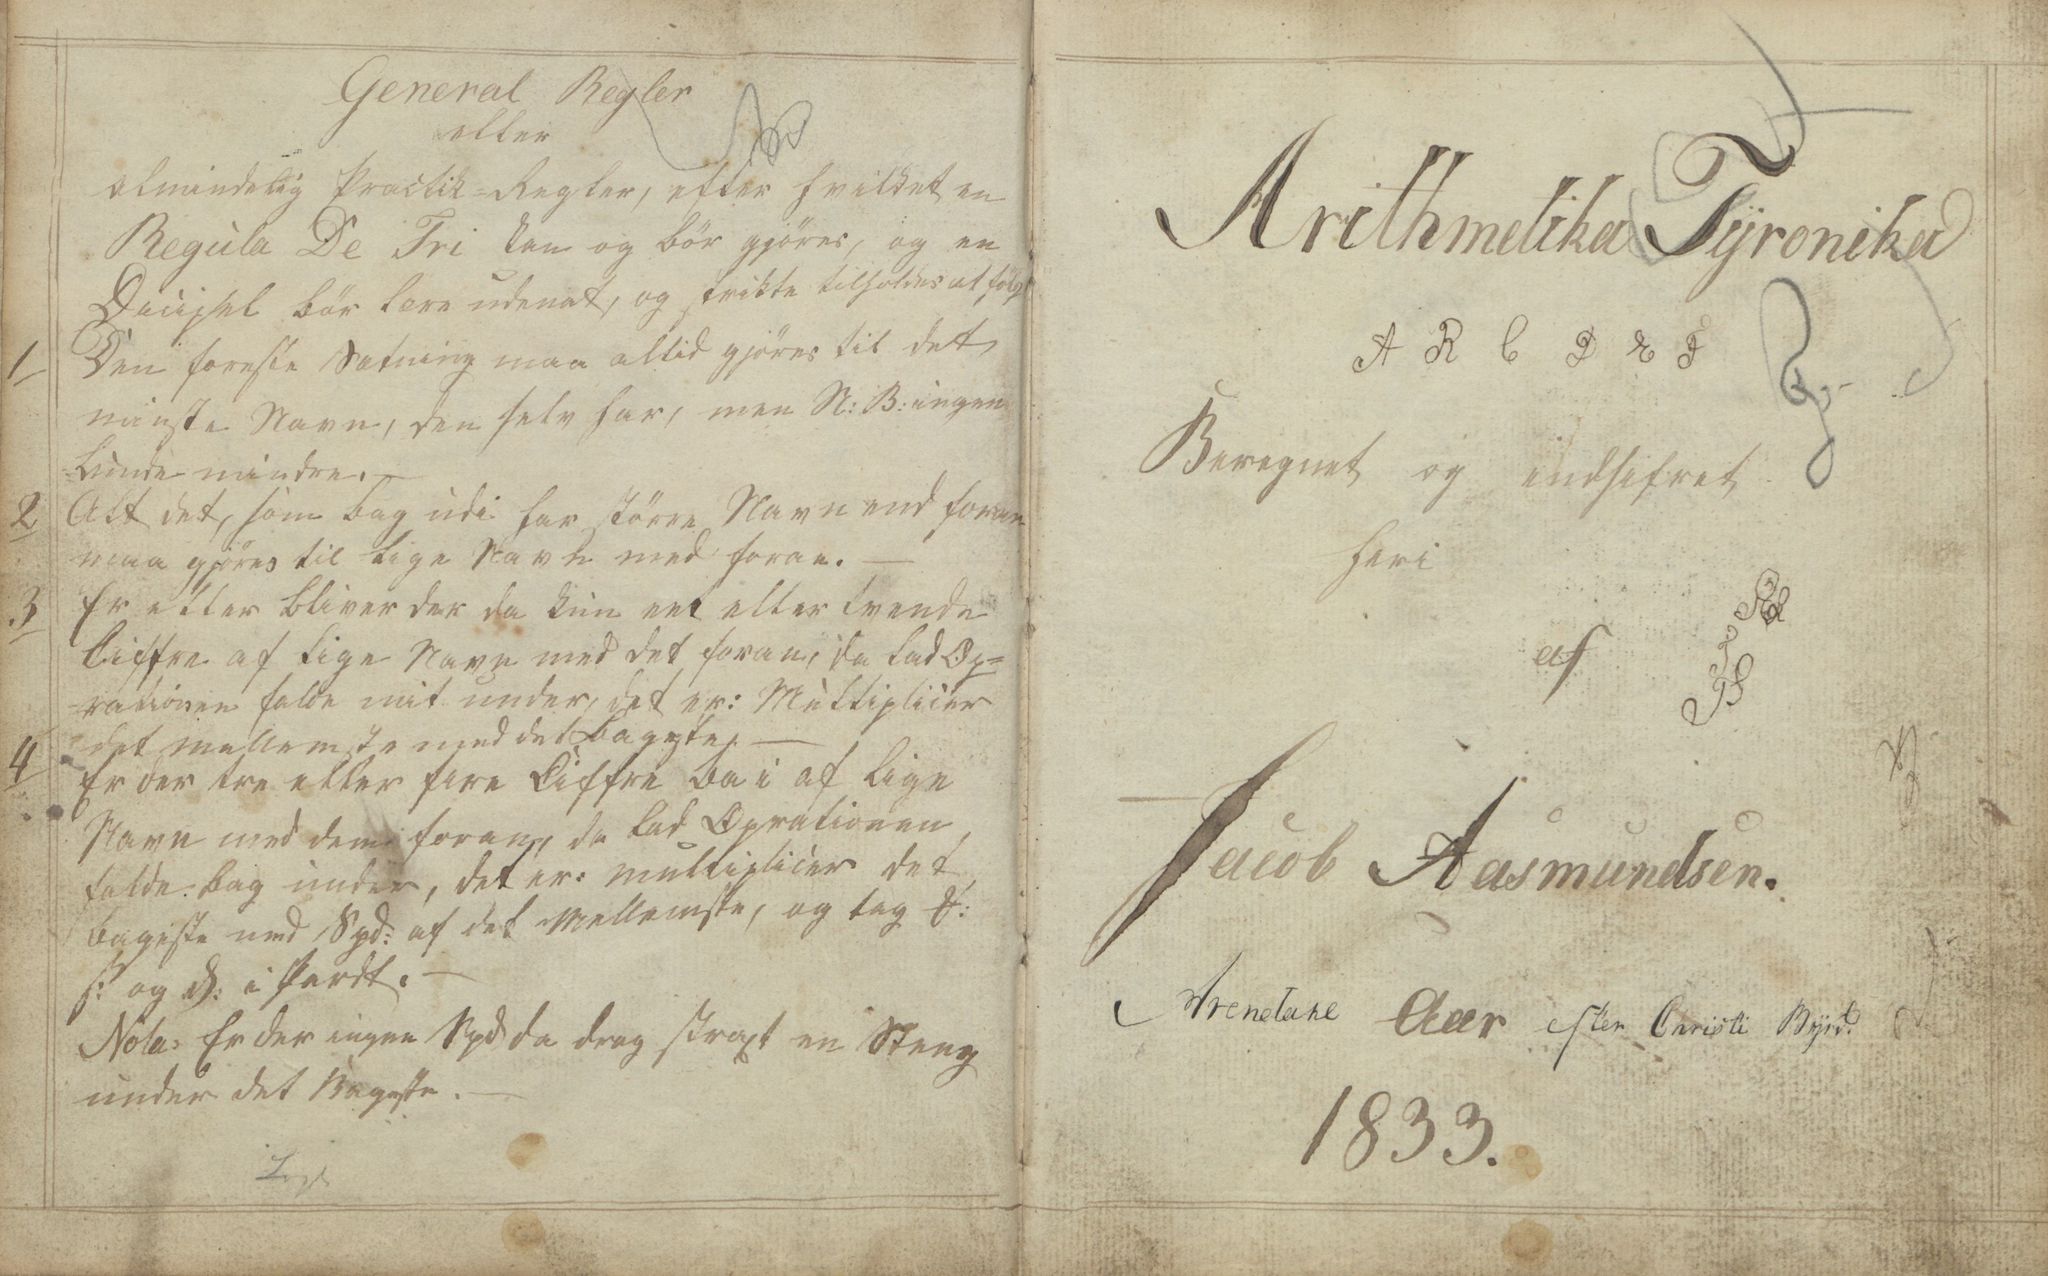 General Regler
eller
almindelig Practik-Regler, efter hvilket en
Regula De Tri kan og bör gjöres, og en
Discipel bör lære udenat, og strikte tilholdes at fölg
1 Den foreste Satning maa altid gjöres til det
minste Navn, den selv har, men N: B: ingen
lunde mindre.
2 Alt det, som bag udi har större Navn end foran
maa gjöres til lige Navn med foran. —
3 Er eller bliver der da kun eet eller tvende
Ciffre af lige Navn med det foran, da lad Op=
rationen falde mit under, det er: Multiplicer
det mellemste med det bageste. —
4 Er der tre eller fire Ciffre ba i af lige
Navn med dem foran, da lad Oprationen
falde bag under, det er: multiplicer det
bageste med Spd: af det Mellemste, og tag
og ß: i Pardt. —
Nota: Er der ingen Spd da drag straxt en Steng
under det Bageste. —
Arithmetika Tÿronika
A R C D E F
Beregnet og indsifret
heri
af
Jacob Aasmundsen.
Aar efter Christi Byrd.
1833.